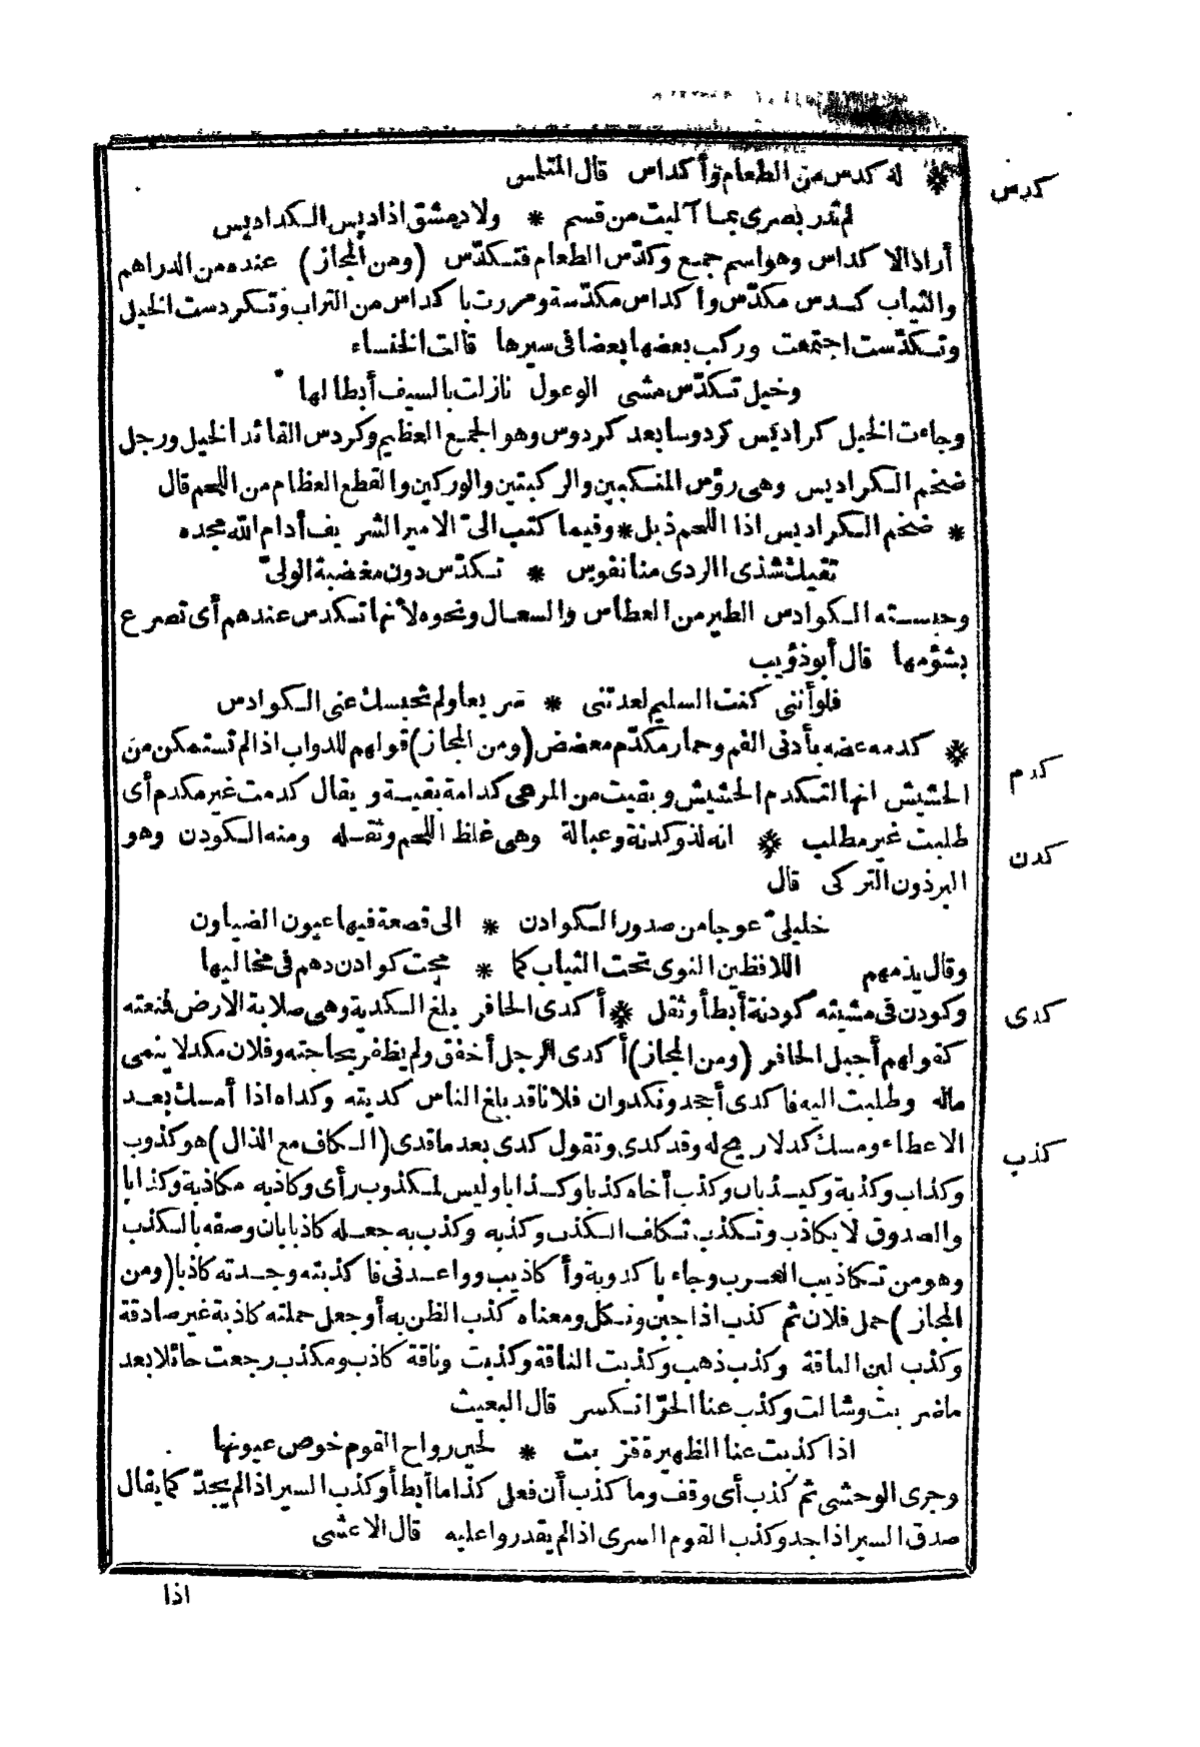 كدس
* له كدس من الطعام وأكداس قال المتلمس
لم تدر بصرى بما آليت من قسم * ولا دمشق اذا ديس الكداديس
أراد الاكداس وهو اسم جمع وكدّس الطعام فتكدّس (ومن المجاز) عنده من الدراهم
والثياب كدس مكدّس وأكداس مكدّسة ومررت باكداس من التراب وتكردست الخيل
وتكدّست اجتمعت وركب بعضها بعضا فى سيرها قالت الخنساء
وخيل تكدّس مشى الوعول نازلت بالسيف أبطالها
وجاءت الخيل كراديس كردوسا بعد كردوس وهو الجمع العظيم وكردس القائد الخيل ورجل
ضخم الكراديس وهى رؤس المنكبين والركبتين والوركين والقطع العظام من اللحم قال
* ضخم الكراديس اذا اللحم ذبل * وفيما كتب الىّ الامير الشريف أدام الله مجده
تقيك شذى الردى منا نفوس * تكدّس دون مغضبة الولىّ
وحبسته الكوادس الطير من العطاس والسعال ونحوه لأنها تكدس عندهم أى تصرع
بشؤمها قال أبو ذؤيب
فلو أننى كنت السليم لعدتنى * سريعا ولم تحبسك عنى الكوادس
كدم
* كدمه عضه بأدنى الفم وحمار مكدّم معضض (ومن المجاز) قولهم للدواب اذا لم تستمكن من
الحشيش انها لتكدم الحشيش وبقيت من المرعى كدامة بقيسة ويقال كدمت غير مكدم أى
كدن
طلبت غير مطلب * انه لذو كدنة وعبالة وهى غلظ اللحم وثقله ومنه الكودن وهو
البرذون التركى قال
خليلىّ عوجا من صدور الكوادن * الى قصعة فيها عيون الضياون
وقال يذمهم اللافظين النوى تحت الثياب كما * مجت كوادن دهم فى مخاليها
كدى
وكودن فى مشيته كودنة أبطأ وثقل * أكدى الحافر بلغ الكدية وهى صلابة الارض فمنعته
كقولهم أجبل الحافر (ومن المجاز) أكدى الرجل أخفق ولم يظفر بحاجته وفلان مكد لا ينمى
ماله وطلبت اليه فاكدى أجحد ونكد وان فلانا قد بلغ الناس كديته وكداه اذا أمسك بعد
كذب
الاعطاء ومسك كد لا ريح له وقد كدى وتقول كدى بعد ما قدى (الكاف مع الذال) هو كذوب
وكذاب وكذبة وكيذبان وكذب أخاه كذبا وكذابا وليس لمكذوب رأى وكاذبه مكاذبة وكذابا
والصدوق لا يكاذب وتكذب تكلف الكذب وكذبه وكذب به جعله كاذبا بان وصفه بالكذب
وهو من تكاذيب العرب وجاء باكذوبة وأكاذيب وواعدنى فاكذبته وجدته كاذبا (ومن
المجاز) حمل فلان ثم كذب اذا جبن ونكل ومعناه كذب الظن به أو جعل حملته كاذبة غير صادقة
وكذب لبن الناقة وكذب ذهب وكذبت الناقة وكذبت وناقة كاذب ومكذب رجعت حائلا بعد
ما ضربت وشالت وكذب عنا الحرّ انكسر قال البعيث
اذا كذبت عنا الظهيرة قربت * لحين رواح القوم خوص عيونها
وجرى الوحشى ثم كذب أى وقف وما كذب أن فعل كذا ما أبطأ وكذب السير اذا لم يجدّ كما يقال
صدق السير اذا جد وكذب القوم السرى اذا لم يقدروا عليه قال الاعشى
اذا